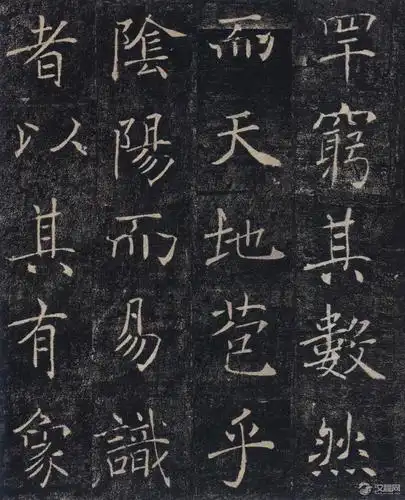 罕窮其數然
而天地苞乎
陰陽而易識
者以其有象
汉程网